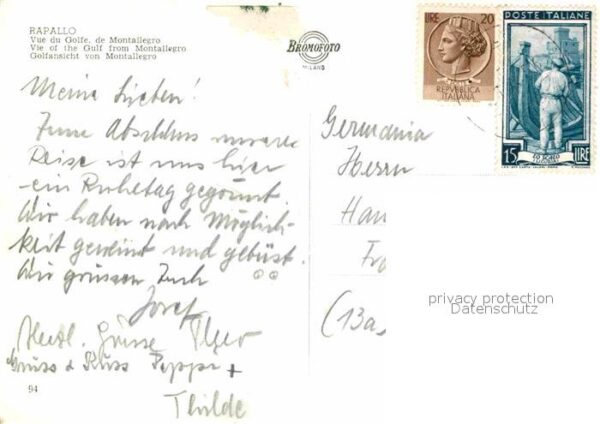 RAPALLO
Vue du Golfe, de Montallegro
Vie of the Gulf from Montallegro
Golfansicht von Montallegro
BROMOFOTO
MILANO
LIRE 20
REPVBBLICA
ITALIANA
POSTE ITALIANE
15 LIRE
Meine Lieben!
Zum Abschluss unserer
Reise ist uns hier
ein Ruhetag gegönnt.
Wir haben nach Möglich-
keit geweint und gebüßt.
Wir grüssen Euch
Josef
Herzl. Grüsse
Gruss & Kuss Peppi +
Thilde
94
Germania
Herrn
Han
Fr
(13a
privacy protection
Datenschutz